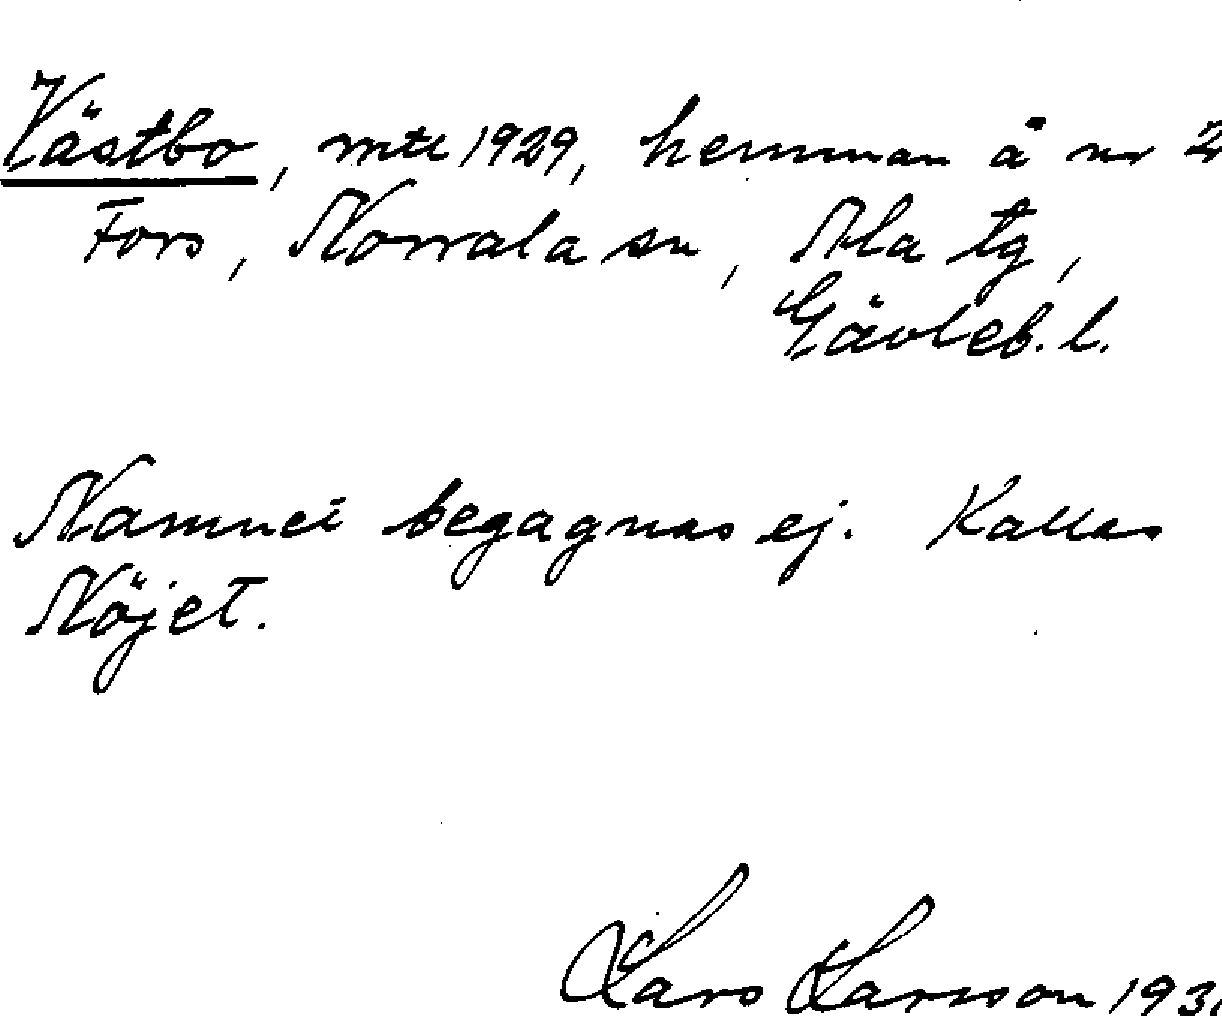 Västbo, mtl 1929, hemman å nr 2
Fors, Norrala sn, Ala tg,
Gävleb. l.
Namnet begagnas ej. Kallas
Nöjet.
Lars Larsson